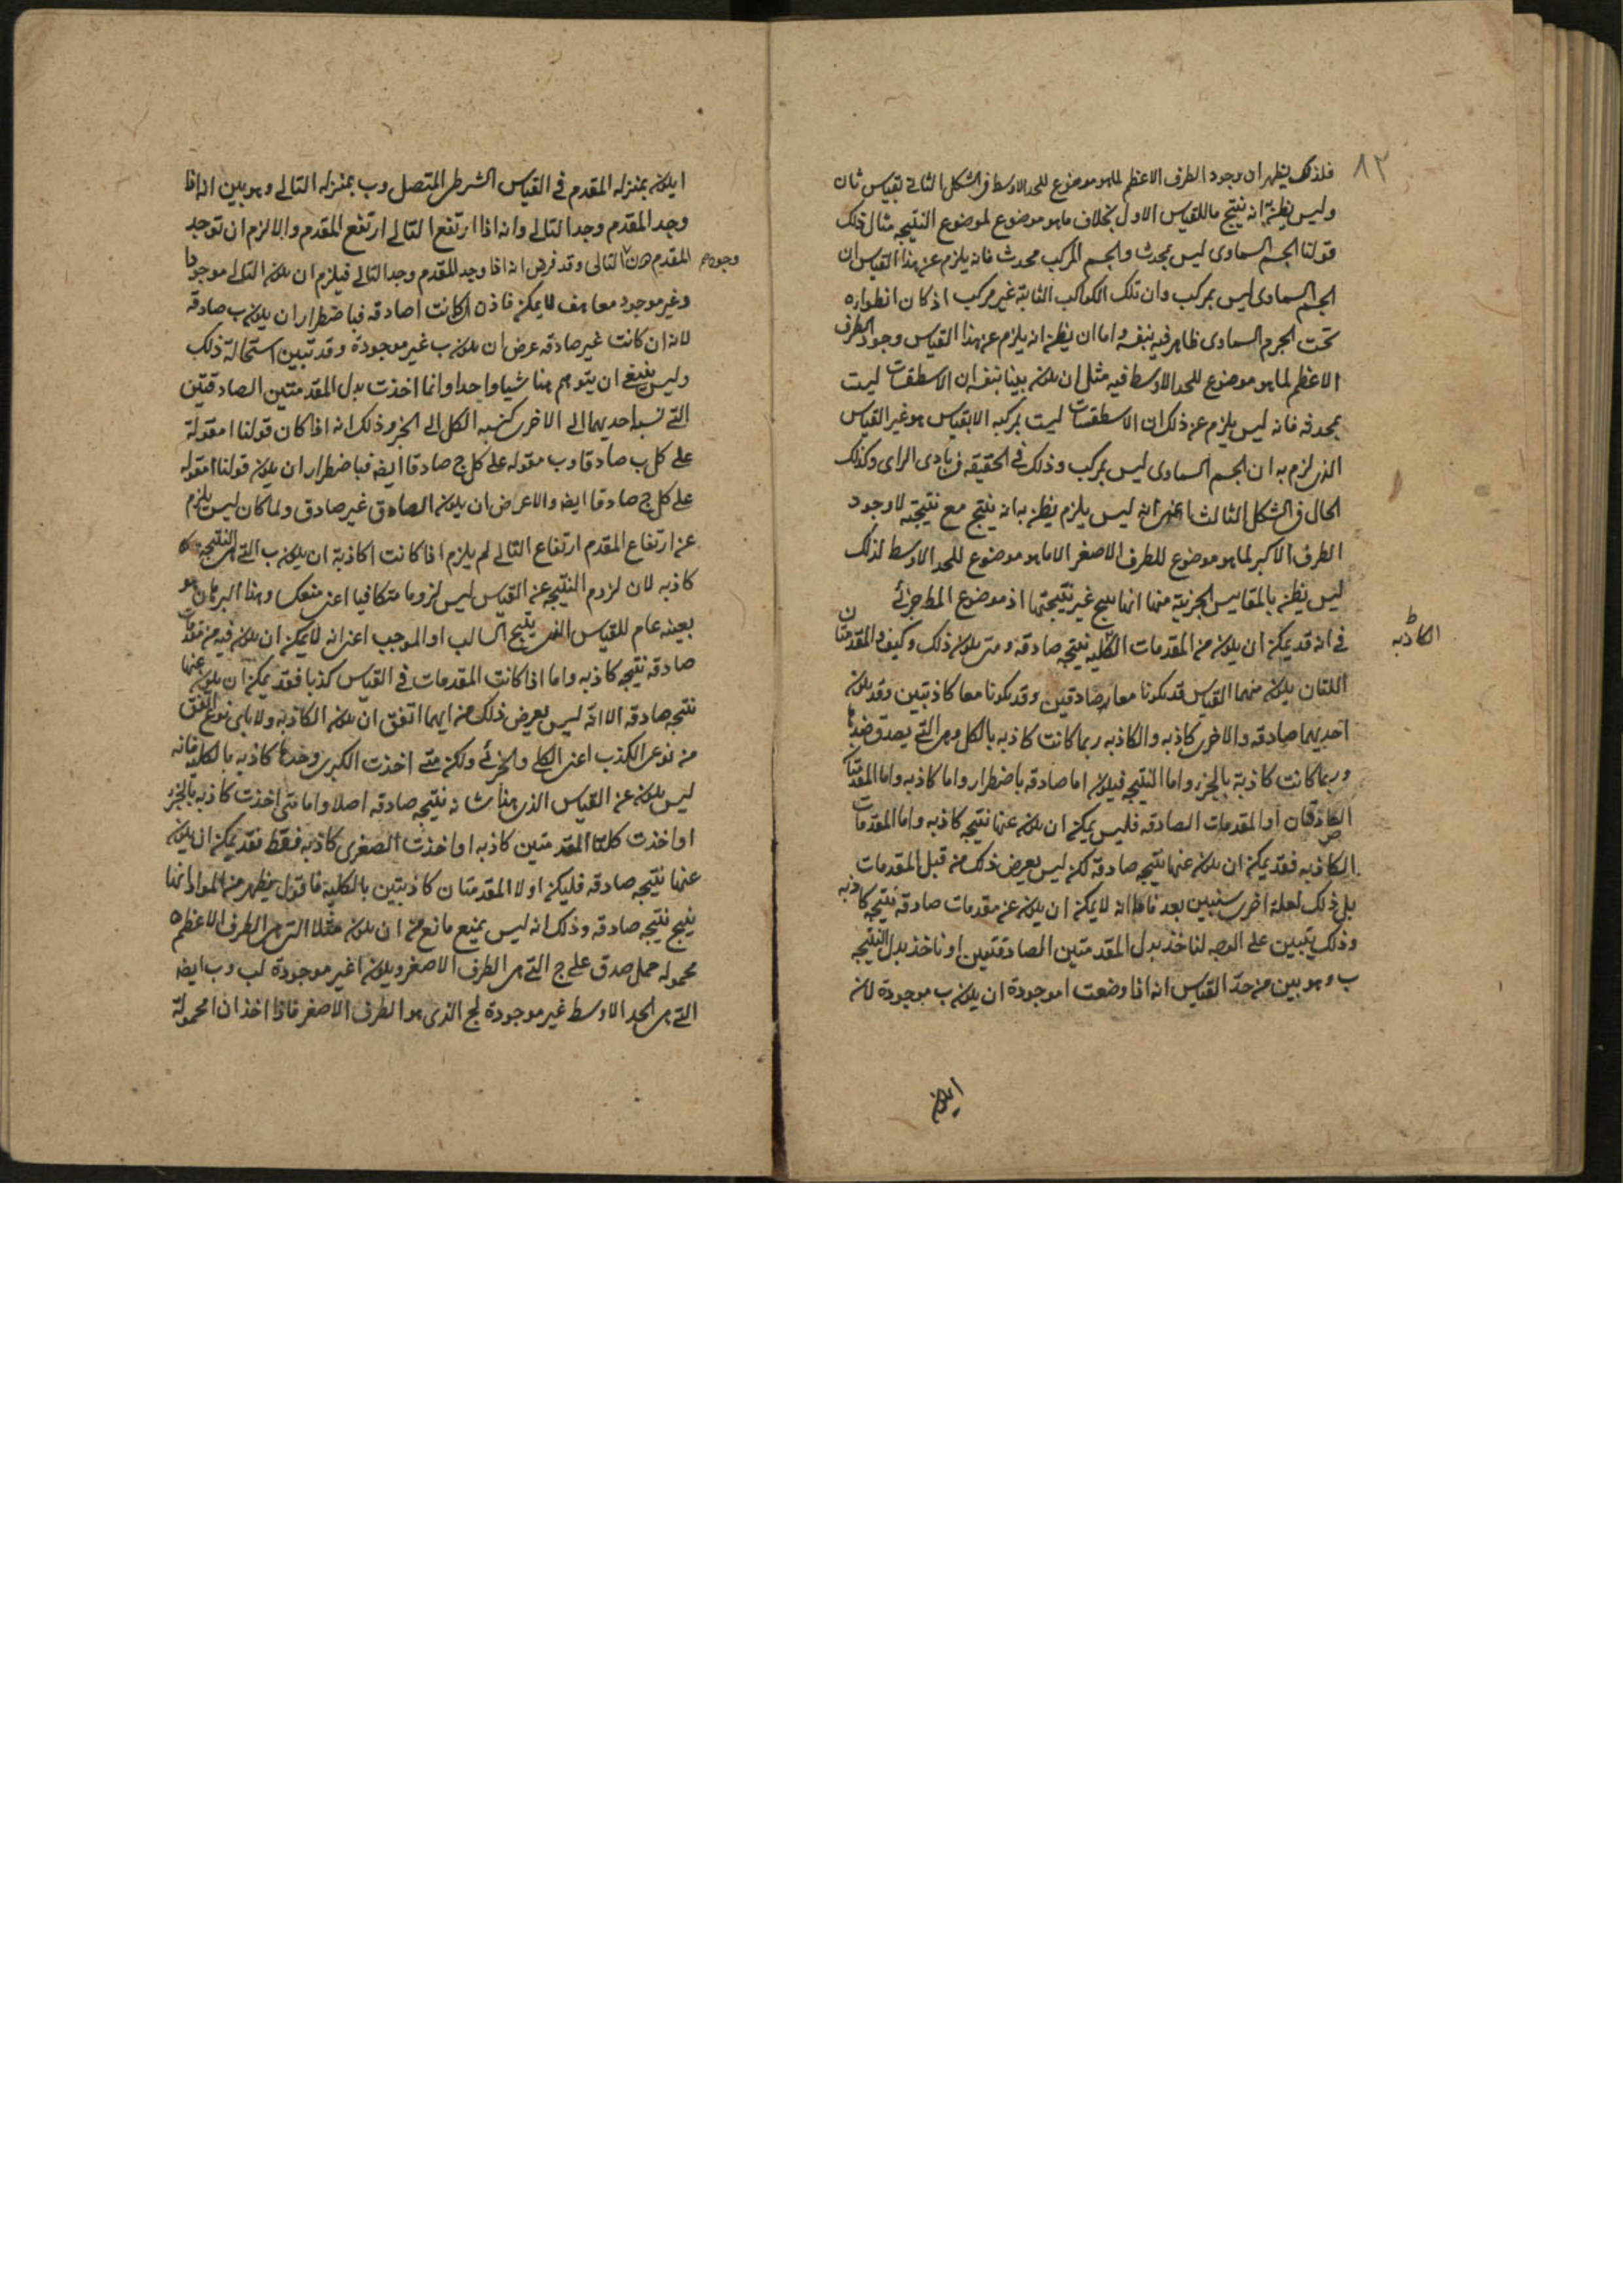 ٨٢
فلذلك يظهر ان وجود الطرف الاعظم لما هو موضوع للحد الاوسط في الشكل الثاني بقياس ثان
وليس يظن انه نتيج ما للقياس الاول بخلاف ما هو موضوع لموضوع النتيجه مثال ذلك
قولنا الجسم السماوى ليس بمحدث والجسم المركب محدث فانه يلزم عن هذا القياس ان
الجسم السماوى ليس بمركب وان تلك الكواكب الثابتة غير مركب اذ كان انطواؤه
تحت الجرم السماوى ظاهر فيه بنفسه واما ان يظن انه يلزم عن هذا القياس وجود الطرف
الاعظم لما هو موضوع للحد الاوسط فيه مثل ان يكون بينا بنفسه ان الاسطقسات ليست
بمحدثه فانه ليس يلزم عن ذلك ان الاسطقسات ليست بمركبه الا بقياس هو غير القياس
الذي لزم به ان الجسم السماوى ليس بمركب وذلك في الحقيقه في بادى الراى وكذلك
الحال في الشكل الثالث اعنى انه ليس يلزم يظن به انه ينتج مع نتيجته لا وجود
الطرف الاكبر لما هو موضوع للطرف الاصغر الا ما هو موضوع للحد الاوسط لذلك
ليس يظن بالمقاييس الجزئية منها انها تنتج غير نتيجتها اذ موضوع المط جزئي
في انه قد يمكن ان يكون من المقدمات الكاذبه نتيجه صادقه ومتى يكون ذلك وكيف والمقدمتان
الكاذبه ط
اللتان يكون منهما القياس قد يكونا معا صادقين وقد يكونا معا كاذبتين وقد يكون
احديهما صادقه والاخرى كاذبه والكاذبه ربما كانت كاذبه بالكل وهى التي يصدق ضدها
وربما كانت كاذبة بالجزء واما النتيجه فيكون اما صادقه باضطرار واما كاذبه واما المقدمتان
الصادقتان او المقدمات الصادقه فليس يمكن ان يكون عنها نتيجه كاذبه واما المقدمات
الكاذبه فقد يمكن ان يكون عنها نتيجه صادقه لكن ليس يعرض ذلك من قبل المقدمات
بل ذلك لعلة اخرى سنبين بعد فاما انه لا يمكن ان يكون عن مقدمات صادقه نتيجه كاذبه
وذلك يتبين على الوجه لناخذ بدل المقدمتين الصادقتين ا وناخذ بدل النتيجه
ب وهو بين من حد القياس انه اذا وضعت ا موجودة ان يكون ب موجودة لان
ا يكون
ا يكون بمنزله المقدم في القياس الشرطى المتصل وب بمنزله التالى وهو بين انه اذا
وجد المقدم وجد التالى وانه اذا ارتفع التالى ارتفع المقدم والا لزم ان توجد
المقدم دون التالى وقد فرض انه اذا وجد المقدم وجد التالى فيلزم ان يكون التالى موجودا
وغير موجود معا هف لا يمكن فاذن ان كانت ا صادقه فباضطرار ان يكون ب صادقه
لانه ان كانت غير صادقه عرض ان يكون ب غير موجودة وقد تبين استحالة ذلك
وليس ينبغى ان يتوهم هنا شيا واحدا وانما اخذت بدل المقدمتين الصادقتين
التي نسبه احديهما الى الاخرى كنسبه الكل الى الجزء وذلك انه اذا كان قولنا ا مقولة
على كل ب صادقا وب مقوله على كل ج صادقا ايضه فباضطرار ان يكون قولنا ا مقوله
على كل ج صادقا ايضه والا عرض ان يكون الصادق غير صادق ولما كان ليس يلزم
عن ارتفاع المقدم ارتفاع التالى لم يلزم اذا كانت ا كاذبة ان يكون ب التي هي النتيجه
كاذبه لان لزوم النتيجه عن القياس ليس لزوما متكافيا اعنى منعكسا وهذا البرهان هو
بعينه عام للقياس الذي ينتج السالب او الموجب اعنى انه لا يمكن ان يكون فيه من مقدمات
صادقه نتيجه كاذبه واما اذا كانت المقدمات في القياس كذبا فقد يمكن ان يكون عنها
نتيجه صادقه الا انه ليس يعرض ذلك من ايهما اتفق ان يكون الكاذبه ولا باى نوع اتفق
من نوعى الكذب اعنى الكلى والجزئى ولكن متى اخذت الكبرى وحدها كاذبه بالكليه فانه
ليس يكون عن القياس الذي هنا شانه نتيجه صادقه اصلا واما متى اخذت كاذبه بالجزء
او اخذت كلتا المقدمتين كاذبه او اخذت الصغرى كاذبه فقط فقد يمكن ان يكون
عنها نتيجه صادقه فليكن اولا المقدمتان كاذبتين بالكلية فاقول يظهر من المواد انها
ينتج نتيجه صادقه وذلك انه ليس يمنع مانع من ان يكون مثلا ا التي هي الطرف الاعظم
محموله حمل صدق على ج التي هي الطرف الاصغر ويكون ا غير موجودة لب وب ايضه
التي هي الحد الاوسط غير موجودة لج الذي هو الطرف الاصغر فاذا اخذ ان ا محمولة